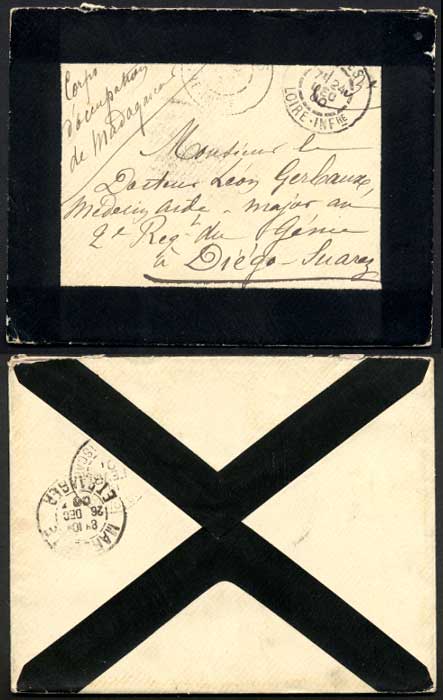 Corps
d'occupation
de Madagascar
24
DEC
00
LOIRE-INFRE
Monsieur le
Docteur Léon Gerbaux,
Médecin aide-major au
2e Regt du Génie
à Diégo-Suarez
ETRANGER
26 DEC
00